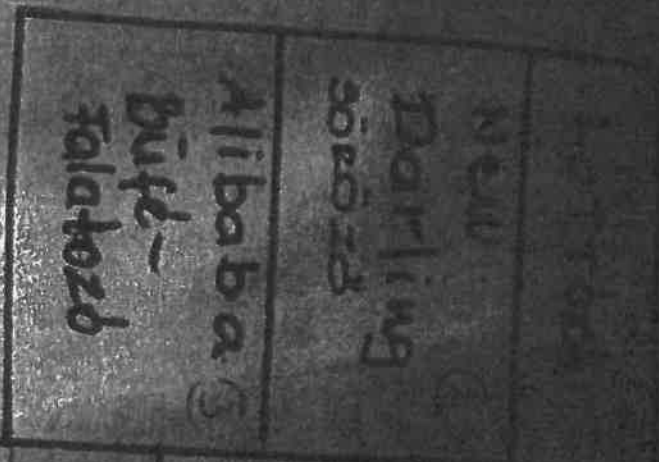 New
Darling
söröző
Alibaba ③
büfé-
falatozó